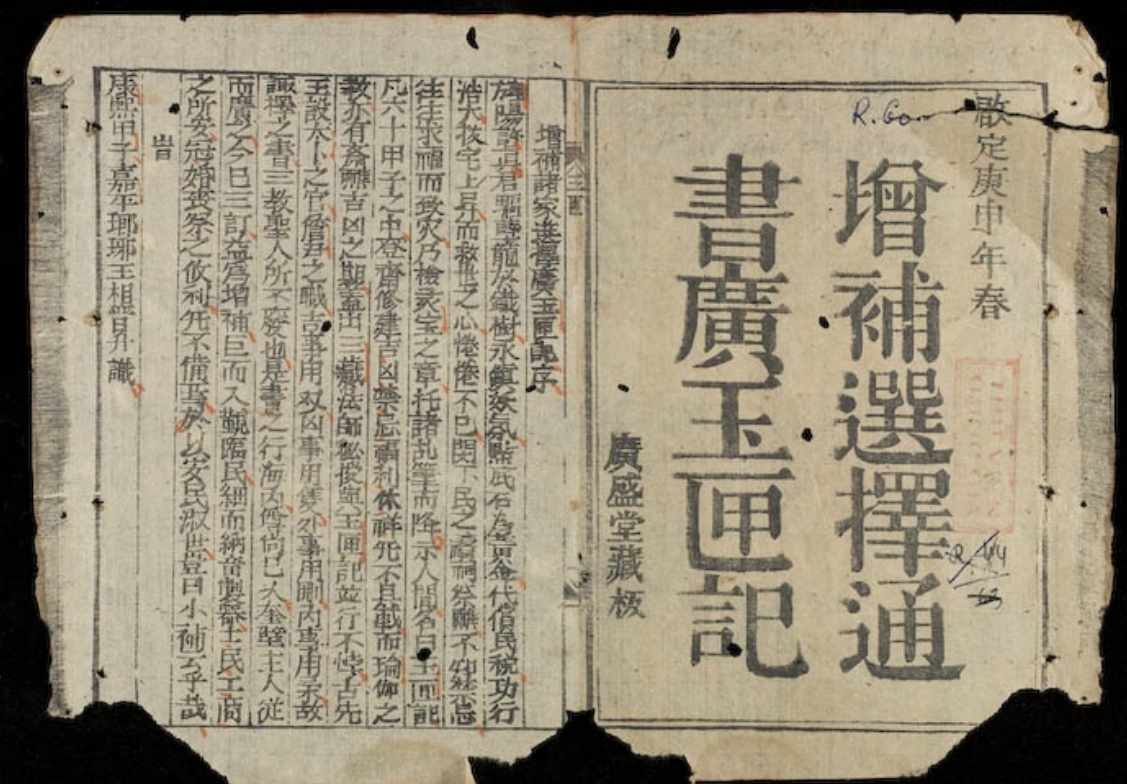 啟定庚申年春
增補選擇通
書廣玉匣記
廣盛堂藏板
增補諸家選擇廣玉匣記序
旌陽許真君驅孽龍於鐵樹永鎮妖氛點瓦石為黃金代償民稅功行
浩大拔宅上昇而救世之心惓惓不已閔下民之齋祠祭醮不知禁忌
往往求福而致灾乃檢灵宝之章托諸乩筆而降示人間名曰玉匣記
凡六十甲子之中登齋修建吉凶禁忌福利休祥无不具載而瑜伽之
教亦有斎醮吉凶之期蓋出三藏法師秘授與玉匣記並行不悖古先
王設太卜之官詹尹之職吉事用双凶事用隻外事用剛內事用柔故
諏擇之書三教聖人所不廢也是書之行海內傳尚已久奎壁主人從
而廣之今已三訂益為增補巨而入覲臨民細而納音製器士民工商
之所安冠婚喪祭之攸利无不備焉於以安民淑世豈曰小補云乎哉
旹
康熙甲子嘉平瑯琊王相昇識